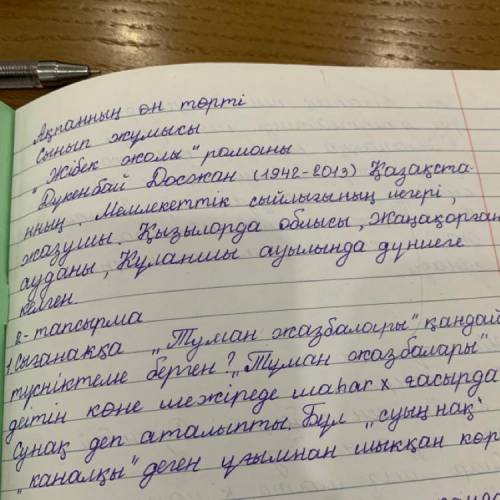 Ақпанның он төрті
Сынып жұмысы
"Жібек жолы" романы
Дүкенбай Досжан (1942-2013) Қазақста-
нның Мемлекеттік сыйлығының иегері,
жазушы. Қызылорда облысы, Жаңақорған
ауданы, Құланшы ауылында дүниеге
келген.
2-тапсырма
1. Сығанаққа "Туман жазбалары" қандай
түсініктеме берген? "Туман жазбалары"
дейтін көне шежіреде шаһar X ғасырда
Сунақ деп аталыпты. Бұл "суың нақ"
"каналқы" деген ұғымнан шыққан көр